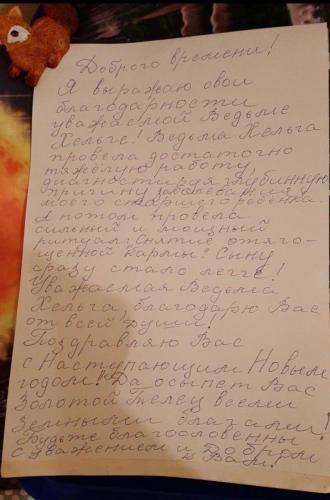 Доброго времени!
Я выражаю свои
благодарности
уважаемой Ведьме
Хельге! Ведьма Хельга
провела достаточно
тяжёлую работу,
диагностируя глубинную
причину заболевания у
моего старшего ребёнка.
А потом провела
сильный и мощный
ритуал: "Снятие отяго-
щенной кармы." Сыну
сразу стало легче!
Уважаемая Ведьма
Хельга, благодарю Вас
от всей души!
Поздравляю Вас
с Наступающим Новым
годом! Да осыпет Вас
Золотой Телец всеми
Земными благами!
Будьте благословенны
С уважением и Добром
к Вам!